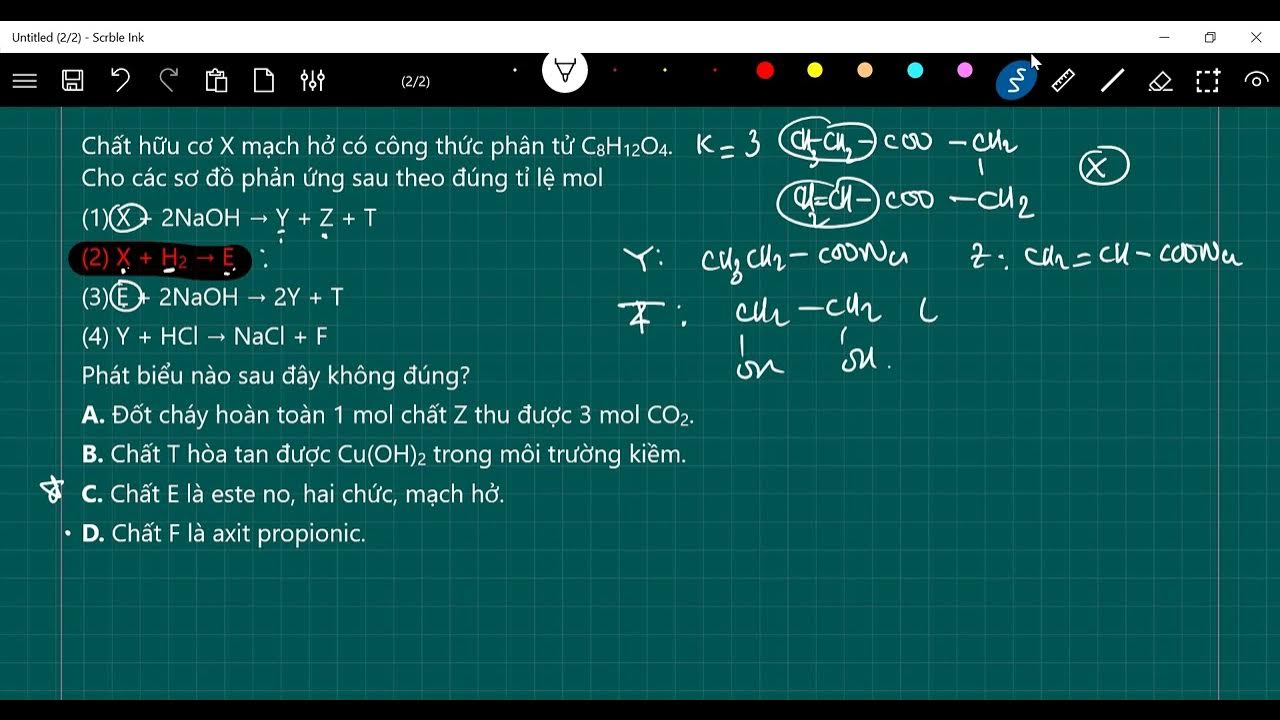 Untitled (2/2) - Scrble Ink
(2/2)
Chất hữu cơ X mạch hở có công thức phân tử C₈H₁₂O₄.
Cho các sơ đồ phản ứng sau theo đúng tỉ lệ mol
(1) X + 2NaOH → Y + Z + T
(2) X + H₂ → E :
(3) E + 2NaOH → 2Y + T
(4) Y + HCl → NaCl + F
Phát biểu nào sau đây không đúng?
A. Đốt cháy hoàn toàn 1 mol chất Z thu được 3 mol CO₂.
B. Chất T hòa tan được Cu(OH)₂ trong môi trường kiềm.
C. Chất E là este no, hai chức, mạch hở.
D. Chất F là axit propionic.
K = 3 CH₃CH₂ - COO - CH₂
X
CH₂=CH - COO - CH₂
Y: CH₃CH₂ - COONa Z: CH₂ = CH - COONa
T: CH₂ - CH₂ (
OH OH.